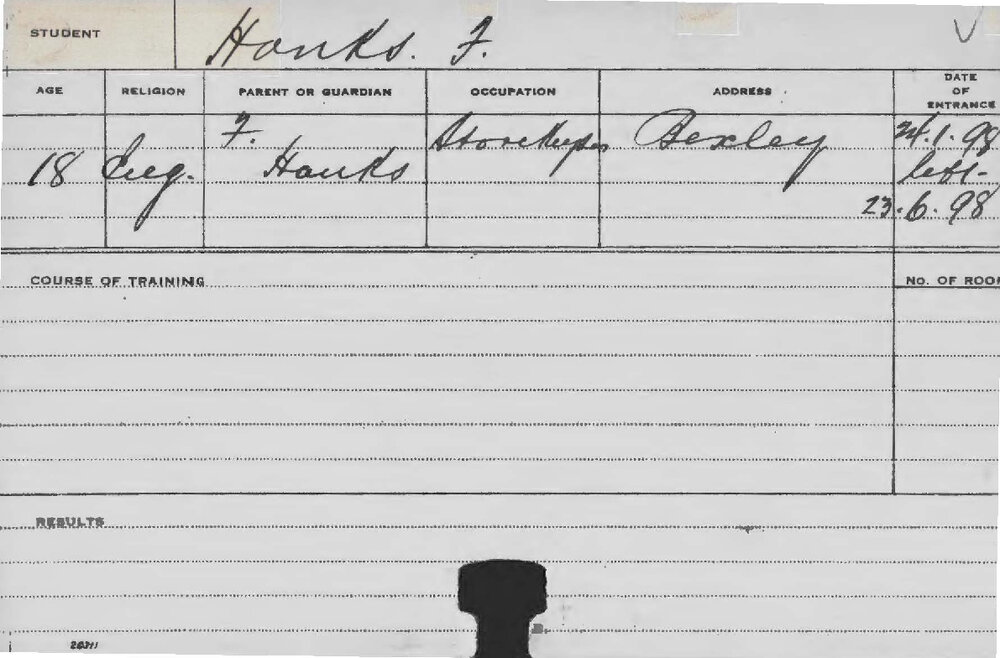 STUDENT Hanks. F.
AGE RELIGION PARENT OR GUARDIAN OCCUPATION ADDRESS DATE OF ENTRANCE
18 Eng. F. Hanks Storekeeper Bexley 24.1.98
left-
23.6.98
COURSE OF TRAINING No. OF ROOM
RESULTS